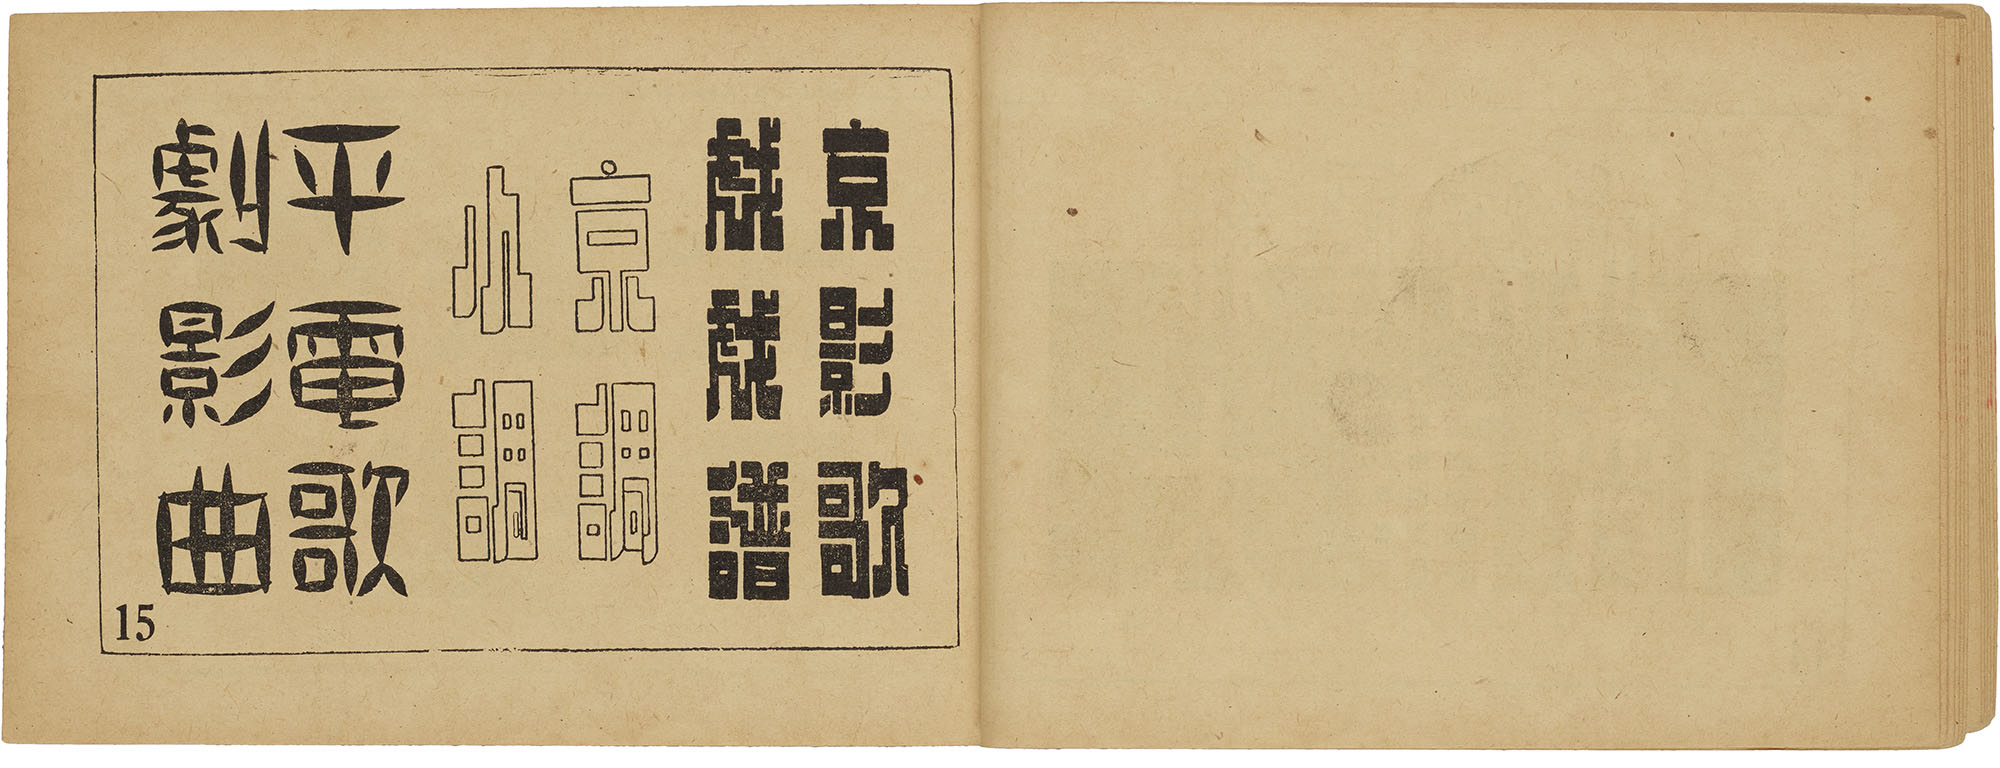 京戲
影戲
歌譜
京調
小調
平劇
電影
歌曲
15